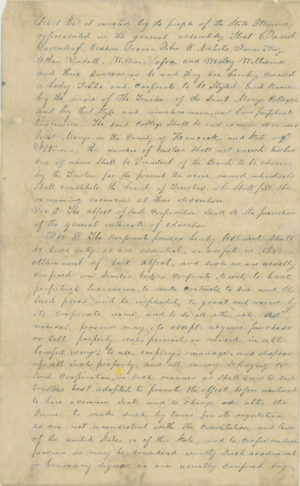 Sec 1 Be it enacted by the people of the State Illinois
represented in the general assembly, That David
Greenleaf, Reason Travis, John B Nichols,
Ethan Kimball, William Safford, and Wesley Williams
and their Successors be and they are hereby created
a body Politic and Corporate to be Styled and known
by the name of The Trustees of the Saint Marys College
and by that Style and name remain and have perpetual
Succession. The said College Shall be and remain at or near
Saint Marys in the County of Hancock and State of
Illinois. the number of trustees shall not exceed twelve
one of whom Shall be President of the Board to be chosen
by the Trustees for the present the above named individuals
Shall constitute the board of Trustees, who Shall fill the
remaining vacancies at their discretion
Sec 2 The object of Said Corporation Shall be the promotion
of the general interests of education
Sec 3 The Corporate powers hereby bestowed Shall
be such only as are essential, or useful in the
attainment of Said object, and such as are usually
confered on Similar bodies corporate, to wit, to have
perpetual Succession, to make contracts, to sue and be
Sued, plead and be impleaded, to grant and receive by
its corporate name, and to do all other acts as
natural persons may, to accept, acquire, purchase
or sell property, real, personal, or mixed, in all
lawful ways, to use, employ, manage, and dispose
of all such property, and all money belonging to
said Corporation, in Such manner as Shall seem to said
trustees best adapted to promote the object before mentioned
to have a common Seal, and to change or alter the
Same, to make such by laws for its regulation
as are not inconsistent with the Constitution, and laws
of the United States or of this State, and to confer on such
persons as may be considered worthy Such academical
or honorary degrees, as are usually confered by